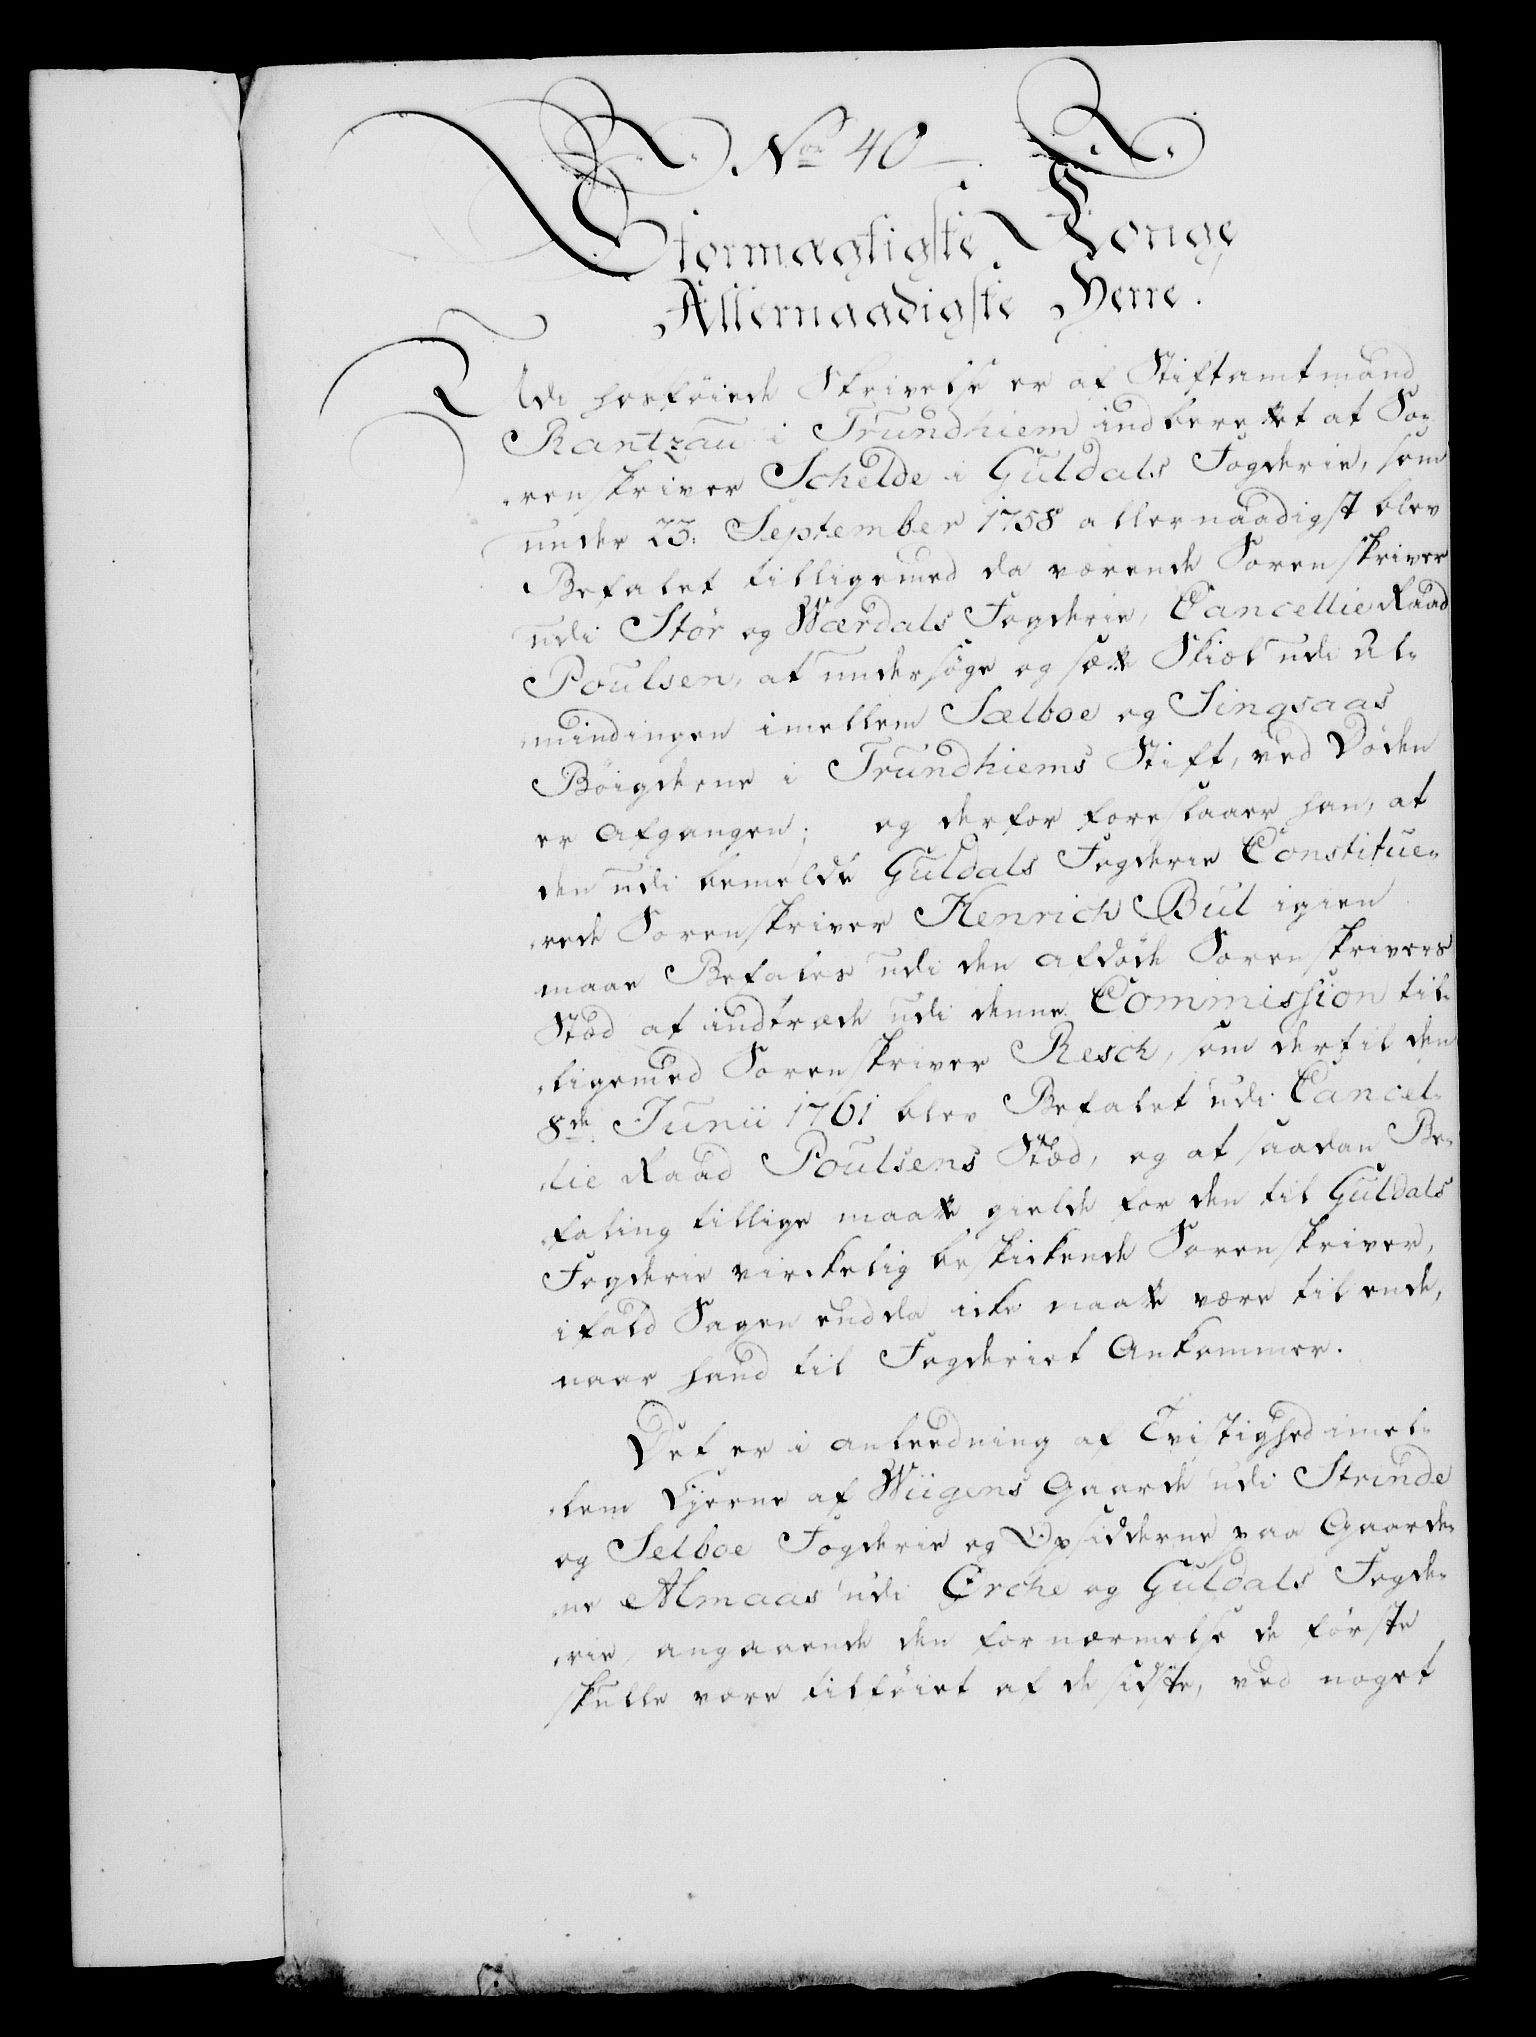 No 40
Stormægtigste Konge
Allernaadigste Herre.
Udi hosføiede Skrivelse er af Stiftamtmand
Rantzau i Trundhiem indberettet at So-
renskriver Schelde i Guldals Fogderie, som
under 23. September 1758 allernaadigst blev
Befalet tilligemed da værende Sorenskriver
udi Stør og Wærdals Fogderie, Cancellie Raad
Poulsen, at undersøge og sætte Skiæl udi Al-
mindingen imellem Sælboe og Singsaas
Bøigderne i Trundhiems Stift, ved Døden
er Afgangen; og derfor foreslaaer han, at
den udi bemeldte Guldals Fogderie Constitue-
rede Sorenskriver Henrich Bul igien
maae Befales udi den Afdøde Sorenskrivers
Stæd at indtræde udi denne Commission til-
ligemed Sorenskriver Resch, som dertil den
8de Junii 1761 blev Befalet udi Cancel-
lie Raad Poulsens Stæd, og at saadan Be-
faling tillige maatte gielde for den til Guldals
Fogderie virkelig beskikkende Sorenskriver,
ifald Sagen endda icke maatte være til ende,
naar hand til Fogderiet Ankommer.
Det er i Anleedning af Tvistighed imel-
lem Ejerne af Wiigens Gaarde udi Strinde
og Selboe Fogderie og Opsidderne paa Gaarde-
ne Almaas udi Orche og Guldals Fogde-
rie, angaaende den fornærmelse de første
skulle være tilføiet af de sidste, ved noget